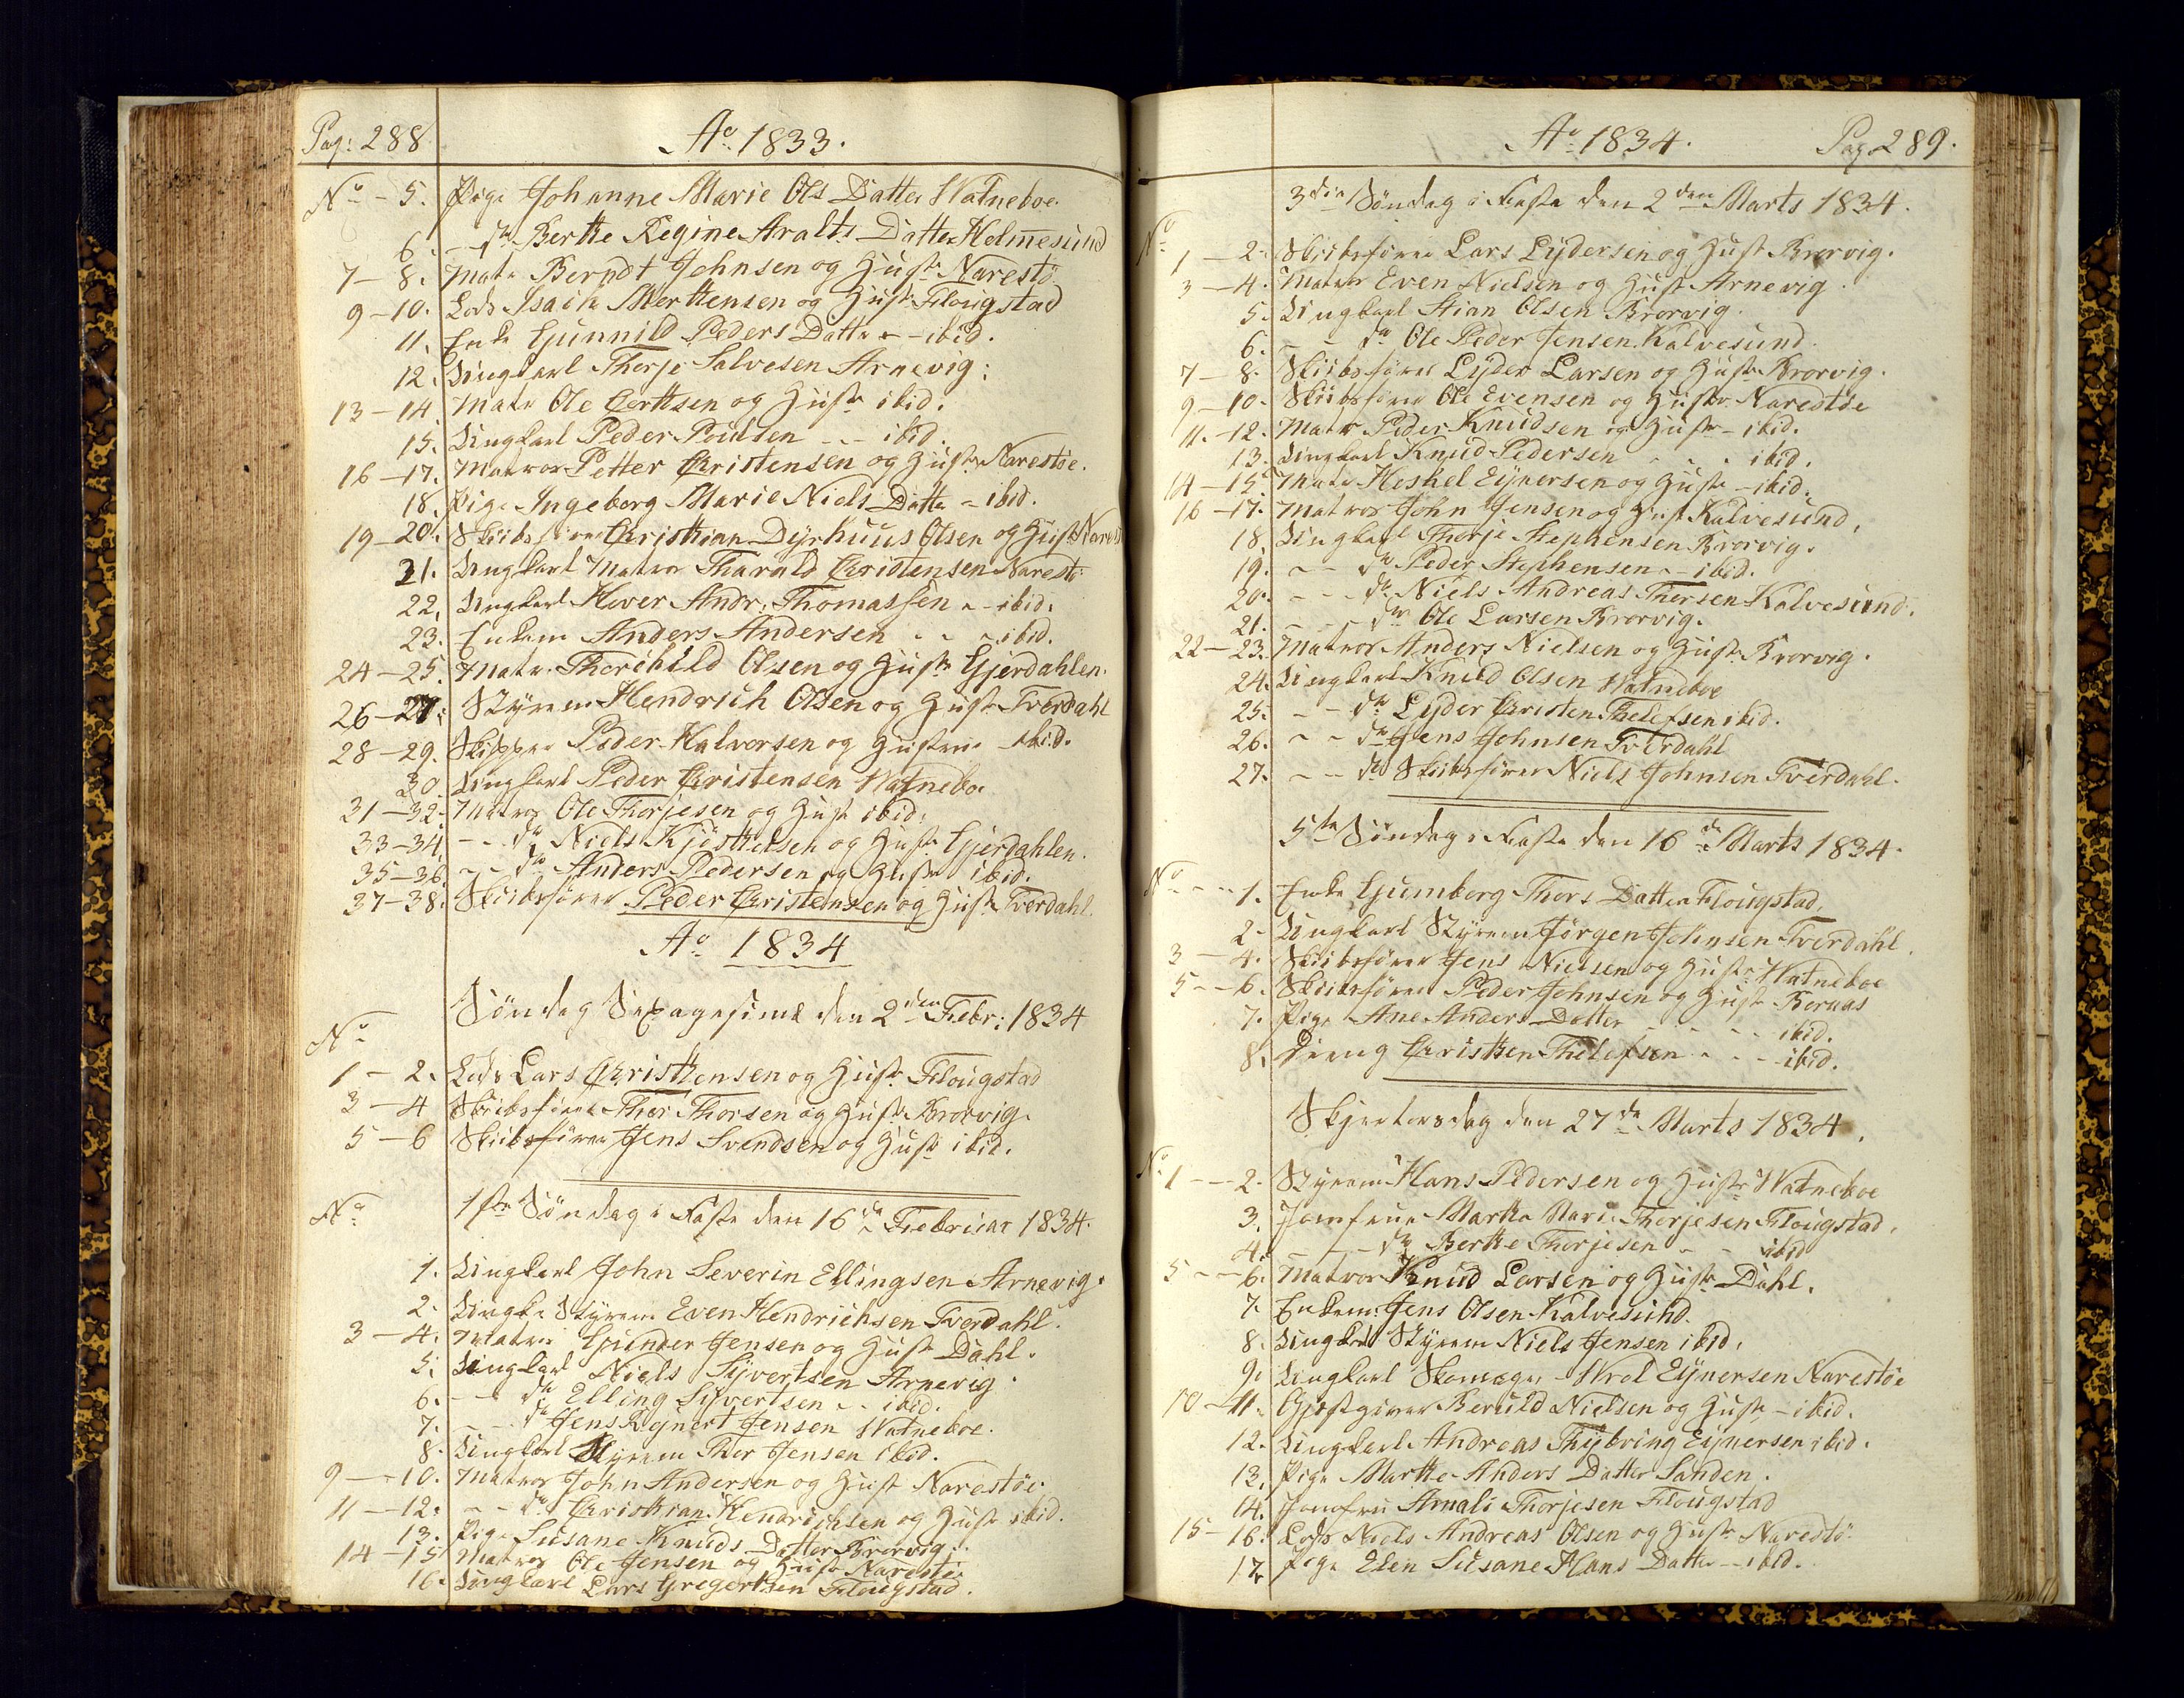 Pag: 288
Ao 1833.
No - 5. Pige Johanne Marie Ols Datter Watneboe.
6. - do Berthe Regine Aralts Datter Holmesund
7 - 8. Matr Berndt Johnsen og Hustr Narestö
9 - 10. Lods Isach Merthensen og Hustr Flougstad
11. Enke Gunnild Peders Datter - - ibid.
12. Ungkarl Thorje Salvesen Arnevig.
13 - 14 Matr Ole Gerttsen og Hustr ibid.
15. Ungkarl Peder Poulsen - - ibid.
16 - 17. Matros Petter Christensen og Hustr Narestöe.
18. Pige Ingeborg Marie Niels Datter - ibid.
19 - 20. Skibsförer Christian Dyrhuus Olsen og Hustr
21. Ungkarl Matros Tharald Christensen Narestö
22. Ungkarl Hover Andr. Thomassen - - ibid.
23. Enkem Anders Andersen - - - ibid.
24 - 25. Matr. Thorchild Olsen og Hustr Gjerdahlen.
26 - 27. Styrem Hendrich Olsen og Hustr Tverdahl
28 - 29. Skipper Peder Halvorsen og Hustrue - ibid.
30. Ungkarl Peder Christensen Watneboe
31 - 32. Matros Ole Thorjesen og Hustr ibid.
33 - 34. - - do Niels Kjösthelsen og Hustr Gjerdahlen.
35 - 36. - - do Anders Pedersen og Hustr ibid.
37 - 38. Skibsförer Peder Christensen og Hustr Tverdahl.
Ao 1834
Söndag Sexagesima den 2den Febr: 1834
No
1 - 2. Lods Lars Christhensen og Hustr Flougstad
3 - 4 Skibsförer Thor Thorsen og Hustr Brorvig.
5 - 6 Skibsförer Jens Svendsen og Hustr ibid.
No 1ste Söndag i Faste den 16de Februar 1834.
1. Ungkarl John Severin Ellingsen Arnevig.
2. Ungk. Styrem Even Hendrichsen Tverdahl.
3 - 4. Matros Gunder Jensen og Hustr Dahl.
5. Ungkarl Niels Syvertsen Arnevig.
6. - - do Elling Syvertsen - - ibid.
7. - - do Jens Rejnert Jensen Watneboe.
8. Ungkarl Styrem Thor Jensen ibid.
9 - - 10. Matros John Andersen og Hustr Narestöe
11 - - 12. - - do Christhian Hendrichsen og Hustr ibid.
13. Pige Susane Knuds Datter Brorvig.
14 - 15 Matros Ole Jensen og Hustr Narestöe
16. Ungkarl Lars Gregerthsen Flougstad.
Ao 1834.
Pag 289.
3die Söndag i Faste den 2den Marts 1834.
No
1 - 2. Skibsförer Lars Lydersen og Hustr Brorvig.
3 - 4. Matros Even Nielsen og Hustr Arnevig.
5. Ungkarl Stian Olsen Brorvig.
6. - - do Ole Peder Jensen Kalvesund.
7 - 8. Skibsförer Lyder Larsen og Hustr Brorvig.
9 - 10. Skibsförer Ole Evensen og Hustr Narestöe
11. - 12. Matr Peder Knudsen og Hustr - ibid.
13. Ungkarl Knud Pedersen - - - ibid.
14 - 15. Matr Heskel Ejnersen og Hustr - ibid.
16 - 17. Matros John Jensen og Hustr Kalvesund.
18. Ungkarl Thorje Stephensen Brorvig.
19. - - do Peder Stephensen - - ibid.
20. - - - do Niels Andreas Thorsen Kalvesund.
21. - - - do Ole Larsen Brorvig.
22 - 23. Matros Anders Nielsen og Hustr Brorvig.
24. Ungkarl Knud Olsen Watneboe
25. - - do Lyder Christen Thelefsen ibid.
26. - - do Jens Johnsen Tverdahl
27. - - do Skibsförer Niels Johnsen Tverdahl.
5te Söndag i Faste den 16de Marts 1834.
No - - - 1. Enke Gumborg Thors Datter Flougstad.
2 - Ungkarl Styrem Jörgen Johnsen Tverdahl.
3 - 4. Skibsförer Jens Nielsen og Hustr Watneboe
5 - - 6. Skibsförer Peder Johnsen og Hustr Bornas
7. Pige Ane Anders Datter - - - - ibid.
8. Dreng Christhen Thelefsen - - - ibid.
Skjertorsdag den 27de Marts 1834.
No 1 - - 2. Styrem Hans Pedersen og Hustr Watneboe
3. Jomfrue Martha Marie Thorjesen Flougstad.
4. - - - do Berthe Thorjesen - - ibid
5 - - 6. Matros Knud Larsen og Hustr Dahl.
7. Enkem: Jens Olsen Kalvesund.
8. Ungkarl Styrem Niels Jensen ibid.
9. Ungkarl Skomager Wrol Ejnersen Narestöe
10 - 11. Gjestgiver Beruld Nielsen og Hustr - ibid.
12. Ungkarl Andreas Thybring Ejnersen ibid.
13. Pige Marthe Anders Datter Sanden.
14. Jomfru Amalie Thorjesen Flougstad
15 - 16. Lods Niels Andreas Olsen og Hustr Narestö
17. Pige Elen Susane Hans Datter - ibid.